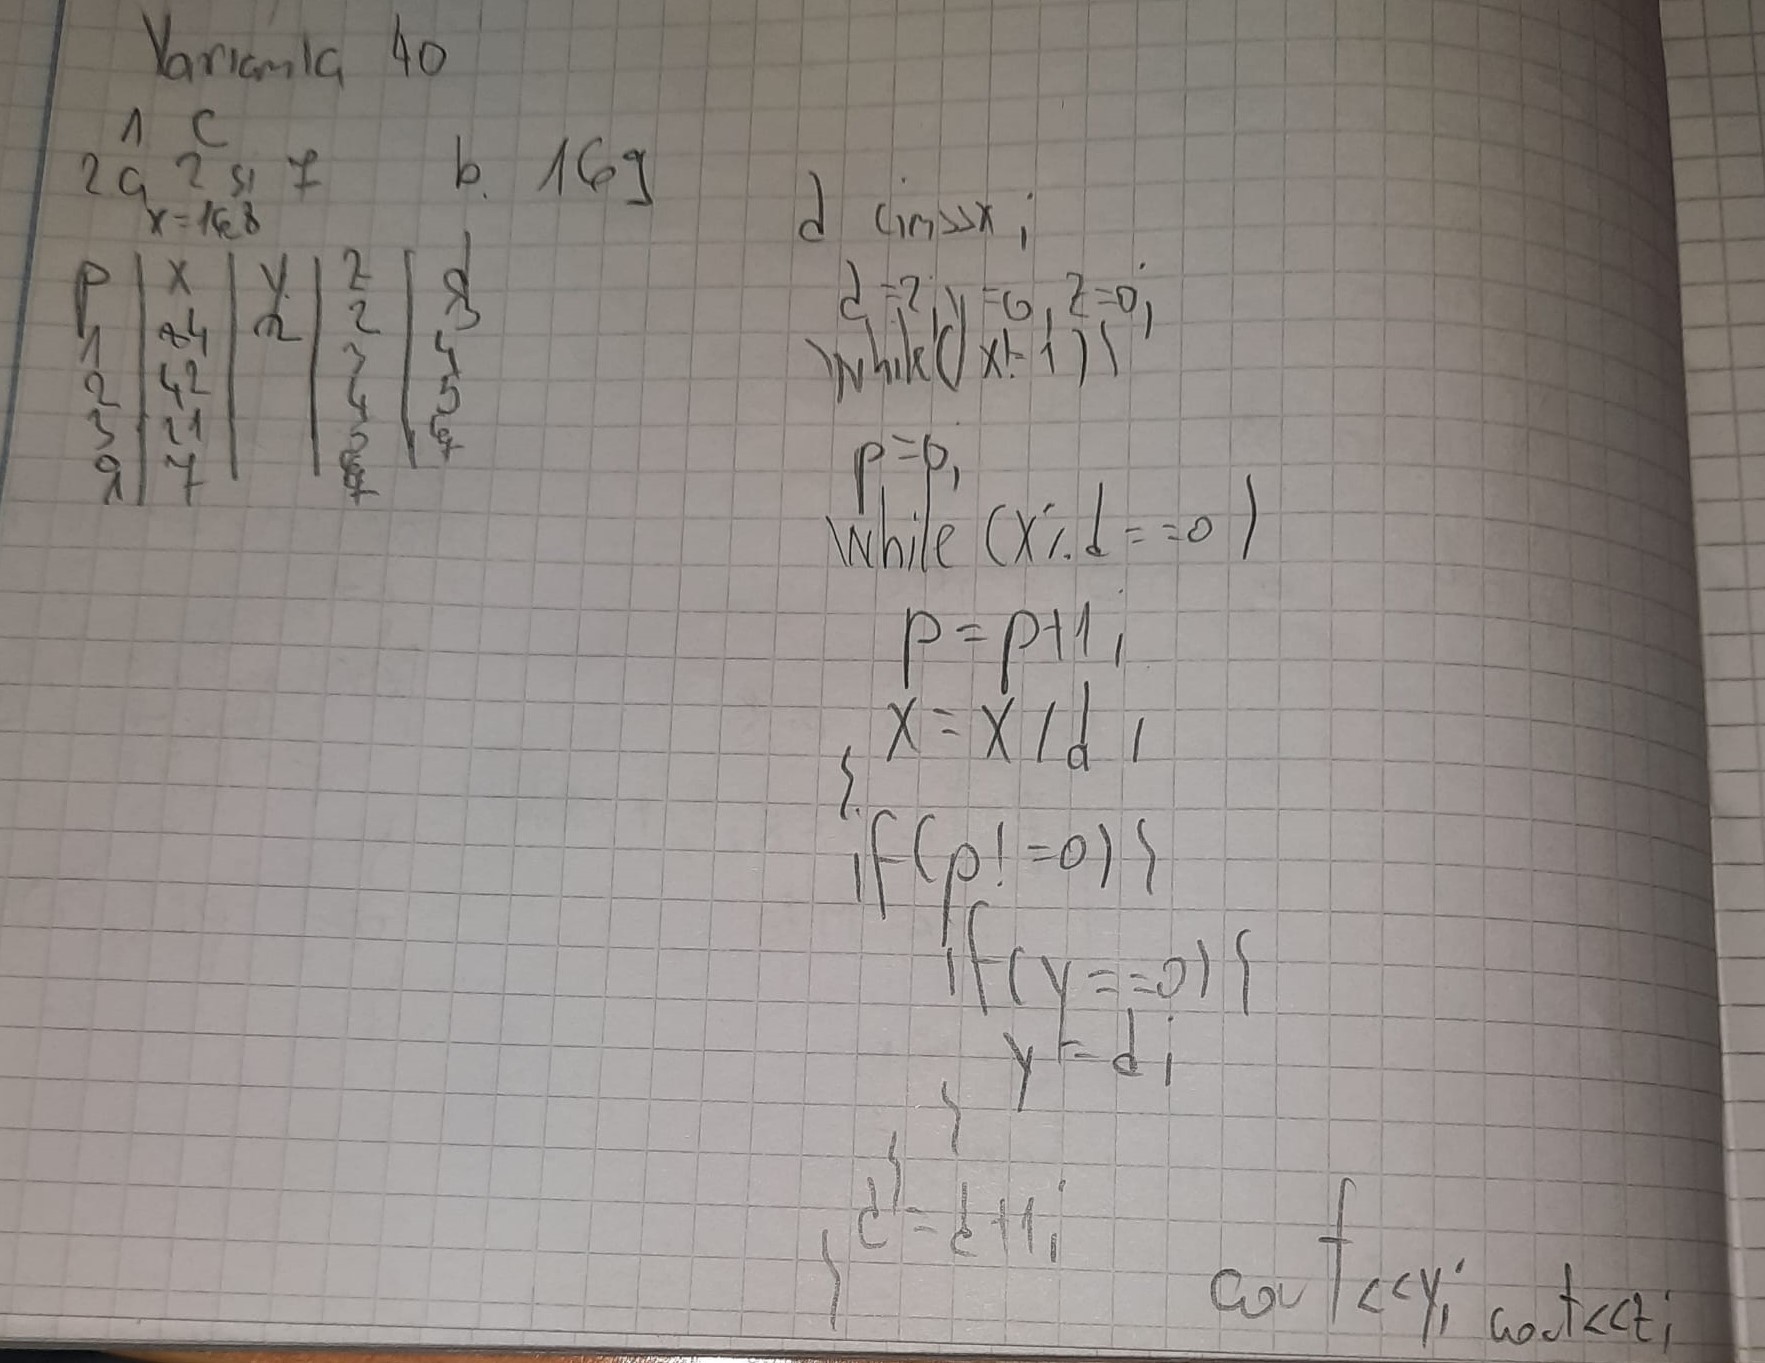 Varianta 40
1 C
2a 2 si 7 b. 169
x=168
p | x | y | z | d
1 | 84 | 2 | 2 | 3
2 | 42 | | 3 | 4
3 | 21 | | 4 | 5
| 7 | | 5 | 6
7 7
d cin>>x;
d=2, y=0, z=0;
while(x!=1){
p=0,
while (x%d==0)
p=p+1;
x=x/d;
}
if(p!=0){
if(y==0){
y=d;
}
}
d=d+1;
}
cout<<y; cout<<z;